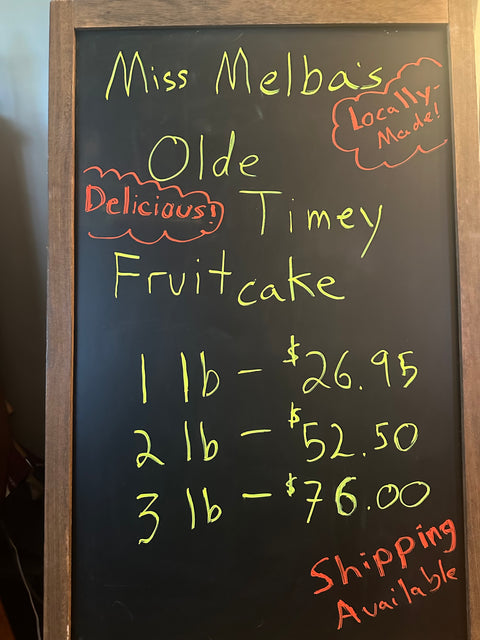 Miss Melba's
Locally-
Made!
Olde
Delicious!
Timey
Fruitcake
1 lb - $26.95
2 lb - $52.50
3 lb - $76.00
Shipping
Available